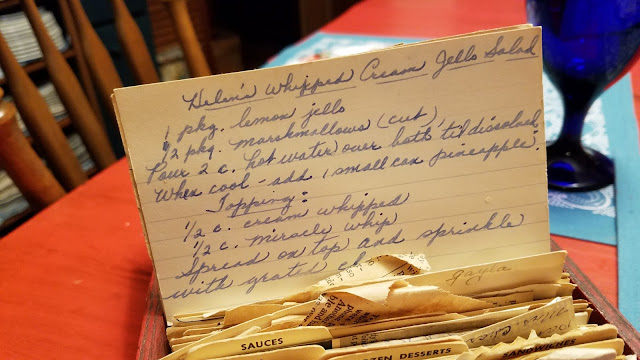 Helen's Whipped Cream Jello Salad
1 pkg. lemon jello
1/2 pkg. marshmallows (cut)
Pour 2 c. hot water over both 'til dissolved.
When cool - add 1 small can pineapple.
Topping:
1/2 c. cream whipped
1/2 c. miracle whip
Spread on top and sprinkle
with grated
SAUCES
DESSERTS
SANDWICHES